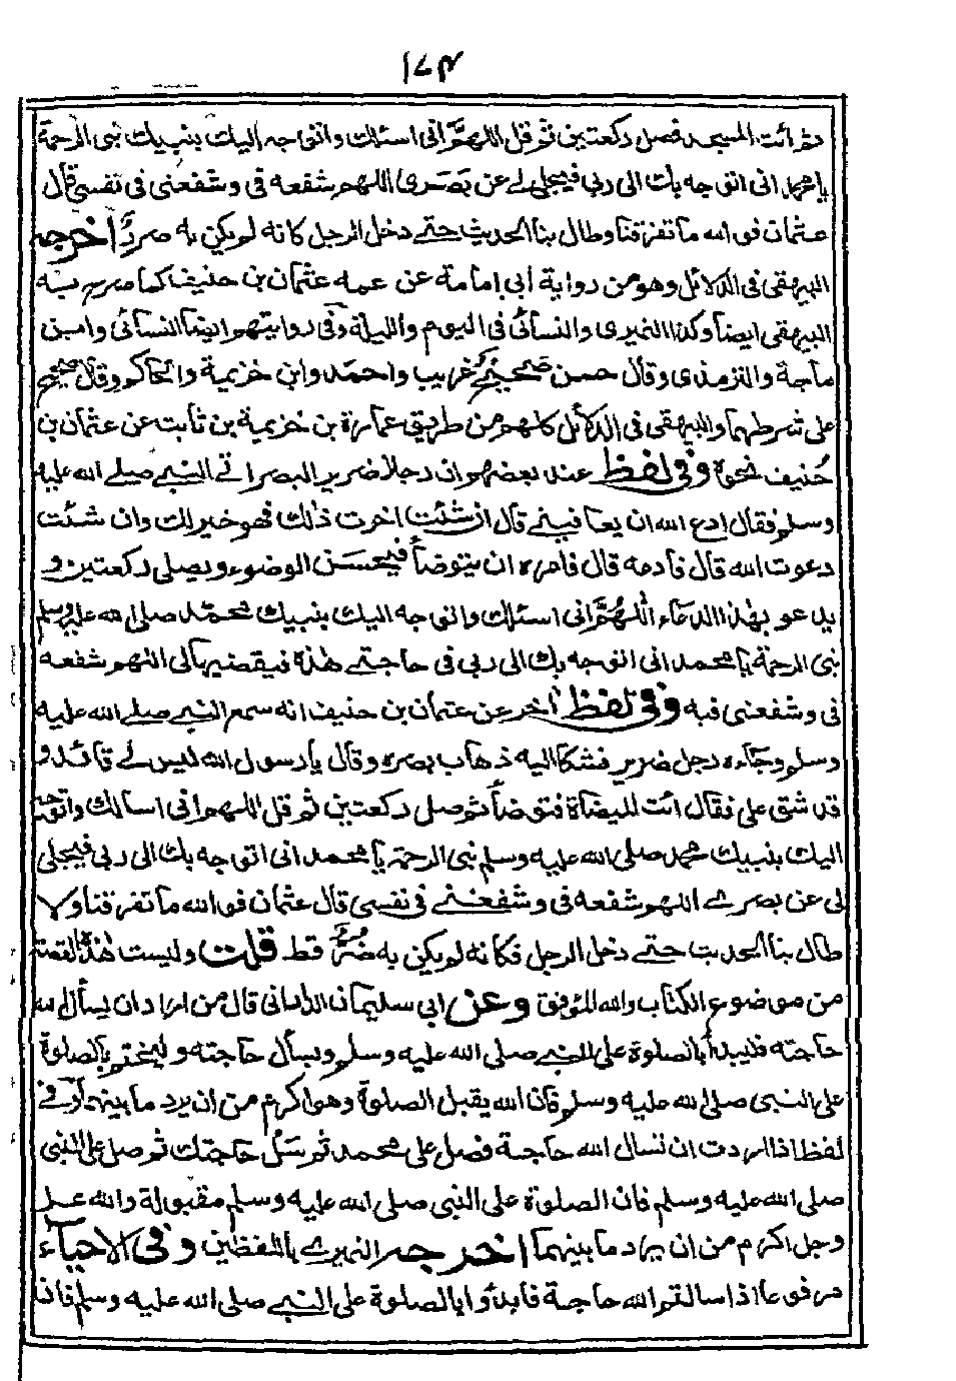 ١٧٣
ثم ائت المسجد فصل ركعتين ثم قل اللهم انى اسئلك واتوجه اليك بنبيك نبى الرحمة
يا محمد انى اتوجه بك الى ربى فيجلى لے عن بصرى اللهم شفعه فى وشفعنى فى نفسى قال
عثمان فوالله ما تفرقنا وطال بنا الحديث حتے دخل الرجل كانه لم يكن به ضرر اخرجه
البيهقى فى الدلائل وهو من رواية ابى امامة عن عمه عثمان بن حنيف كما صرح به
البيهقى ايضا وكذا النميرى والنسائى فى اليوم والليلة وفى روايتهم ايضا النسائى وابن
ماجة والترمذى وقال حسن صحيح غريب واحمد وابن خزيمة والحاكم وقال صحيح
على شرطهما والبيهقى فى الدلائل كلهم من طريق عمارة بن خزيمة بن ثابت عن عثمان بن
حُنيف نحوه وفى لفظ عند بعضهم ان رجلا ضرير البصر اتے النبے صلے الله عليه
وسلم فقال ادع الله ان يعافينے قال ان شئت اخرت ذلك فهو خير لك وان شئت
دعوت الله قال فادعه قال فامره ان يتوضأ فيحسن الوضوء ويصلى ركعتين و
يدعو بهذا الدعاء اللهُمَّ انى اسئلك واتوجه اليك بنبيك محمد صلى الله عليه وسلم
نبى الرحمة يا محمد انى اتوجه بك الى ربى فى حاجتے هذه فيقضيها لى اللهم شفعه
فى وشفعنى فيه وفى لفظ اخر عن عثمان بن حنيف انه سمع النبے صلے الله عليه
وسلم وجاءه رجل ضرير فشكا اليه ذهاب بصره وقال يا رسول الله ليس لے قائد و
قد شق على فقال ائت الميضاة فتوضأ ثم صل ركعتين ثم قل اللهم انى اسالك واتوجه
اليك بنبيك محمد صلى الله عليه وسلم نبى الرحمة يا محمد انى اتوجه بك الى ربى فيجلى
لى عن بصرے اللهم شفعه فى وشفعنے فى نفسى قال عثمان فوالله ما تفرقنا ولا
طال بنا الحديث حتے دخل الرجل فكانه لم يكن به ضُرٌّ قط قلت وليست هذه القصة
من موضوع الكتاب والله الموفق وعن ابى سليمان الدارانى قال من اراد ان يسأل الله
حاجته فليبدأ بالصلوة على النبے صلى الله عليه وسلم ويسأل حاجته وليختم بالصلوة
على النبى صلى الله عليه وسلم فان الله يقبل الصلوة وهو اكرم من ان يرد ما بينهما وفے
لفظ اذا اردت ان تسال الله حاجة فصل على محمد ثم سَل حاجتك ثم صل على النبى
صلى الله عليه وسلم فان الصلوة على النبى صلى الله عليه وسلم مقبولة والله عز
وجل اكرم من ان يرد ما بينهما اخرجه النميرے باللفظين وفى الاحياء
مرفوعا اذا سالتم الله حاجة فابدأوا بالصلوة على النبے صلى الله عليه وسلم فان